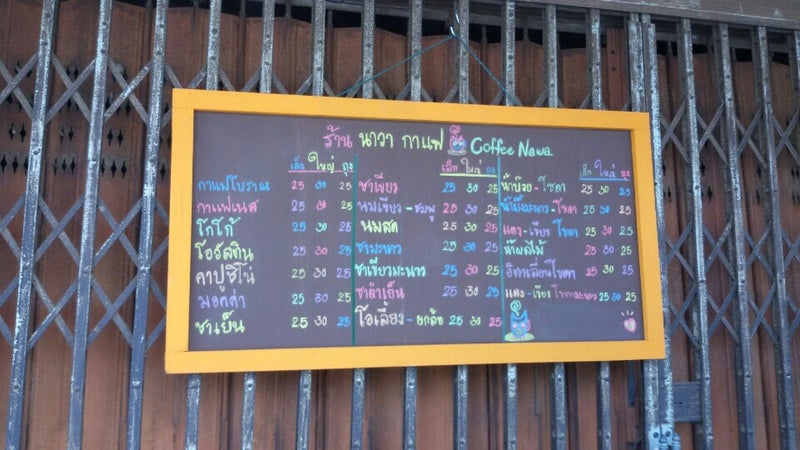 ร้าน นาวา กาแฟ Coffee Nawa
เล็ก ใหญ่ ถุง
กาแฟโบราณ 25 30 25
กาแฟเนส 25 30 25
โกโก้ 25 30 25
โอวัลติน 25 30 25
คาปูชิโน่ 25 30 25
มอคค่า 25 30 25
ชาเย็น 25 30 25
เล็ก ใหญ่ ถุง
ชาเขียว 25 30 25
นมเขียว - ชมพู 25 30 25
นมสด 25 30 25
ชามะนาว 25 30 25
ชาเขียวมะนาว 25 30 25
ชาดำเย็น 25 30 25
โอเลี้ยง - ยกล้อ 25 30 25
เล็ก ใหญ่ ถุง
น้ำบ๊วย - โซดา 25 30 25
น้ำผึ้งมะนาว - โซดา 25 30 25
แดง - เขียว โซดา 25 30 25
น้ำผลไม้ 25 30 25
อิตาเลี่ยนโซดา 25 30 25
แดง - เขียว โซดามะนาว 25 30 25